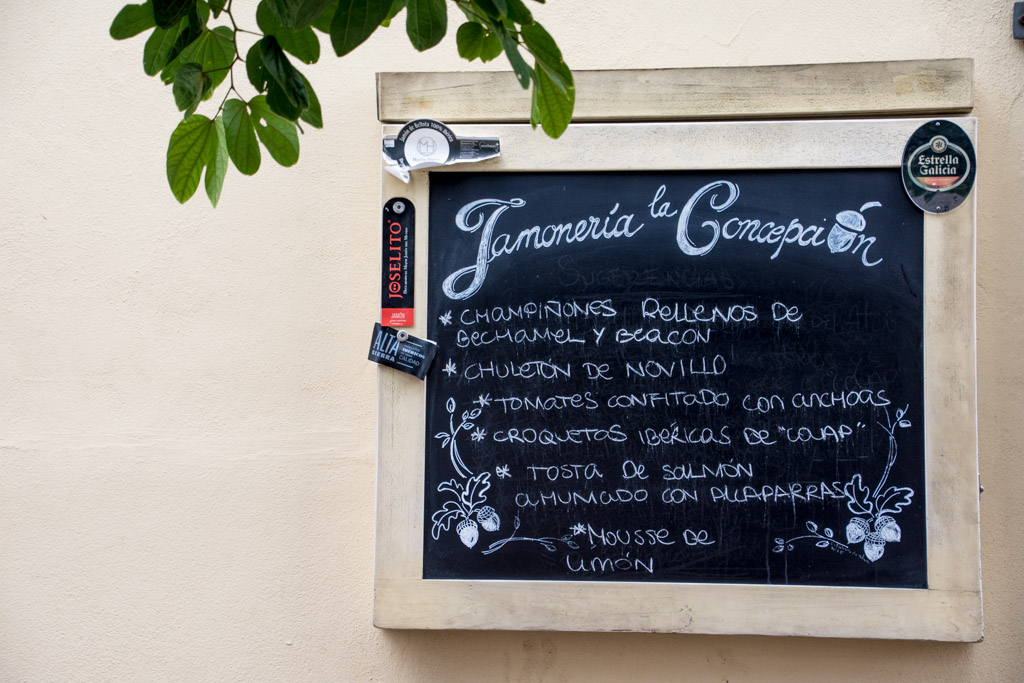 Jamón de Bellota 100% Ibérico
MH
Estrella
Galicia
JOSELITO
JAMÓN
ALTA
SIERRA
IBÉRICOS
CALIDAD
Jamonería la Concepción
SUGERENCIAS
* CHAMPIÑONES RELLENOS DE
BECHAMEL Y BEACON
* CHULETÓN DE NOVILLO
* TOMATES CONFITADO CON ANCHOAS
* CROQUETAS IBÉRICAS DE "COJAP"
* TOSTA DE SALMÓN
AHUMADO CON ALCAPARRAS
* MOUSSE DE
LIMÓN